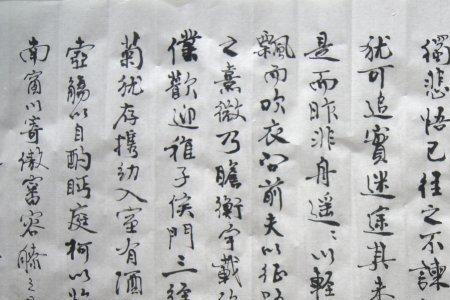 獨悲悟已往之不諫
猶可追實迷途其未
是而昨非舟遙〻以輕
飄而吹衣問前夫以征
之熹微乃瞻衡宇載
僕歡迎稚子候門三徑
菊猶存攜幼入室有酒
壺觴以自酌眄庭柯以怡
南窗以寄傲審容膝之